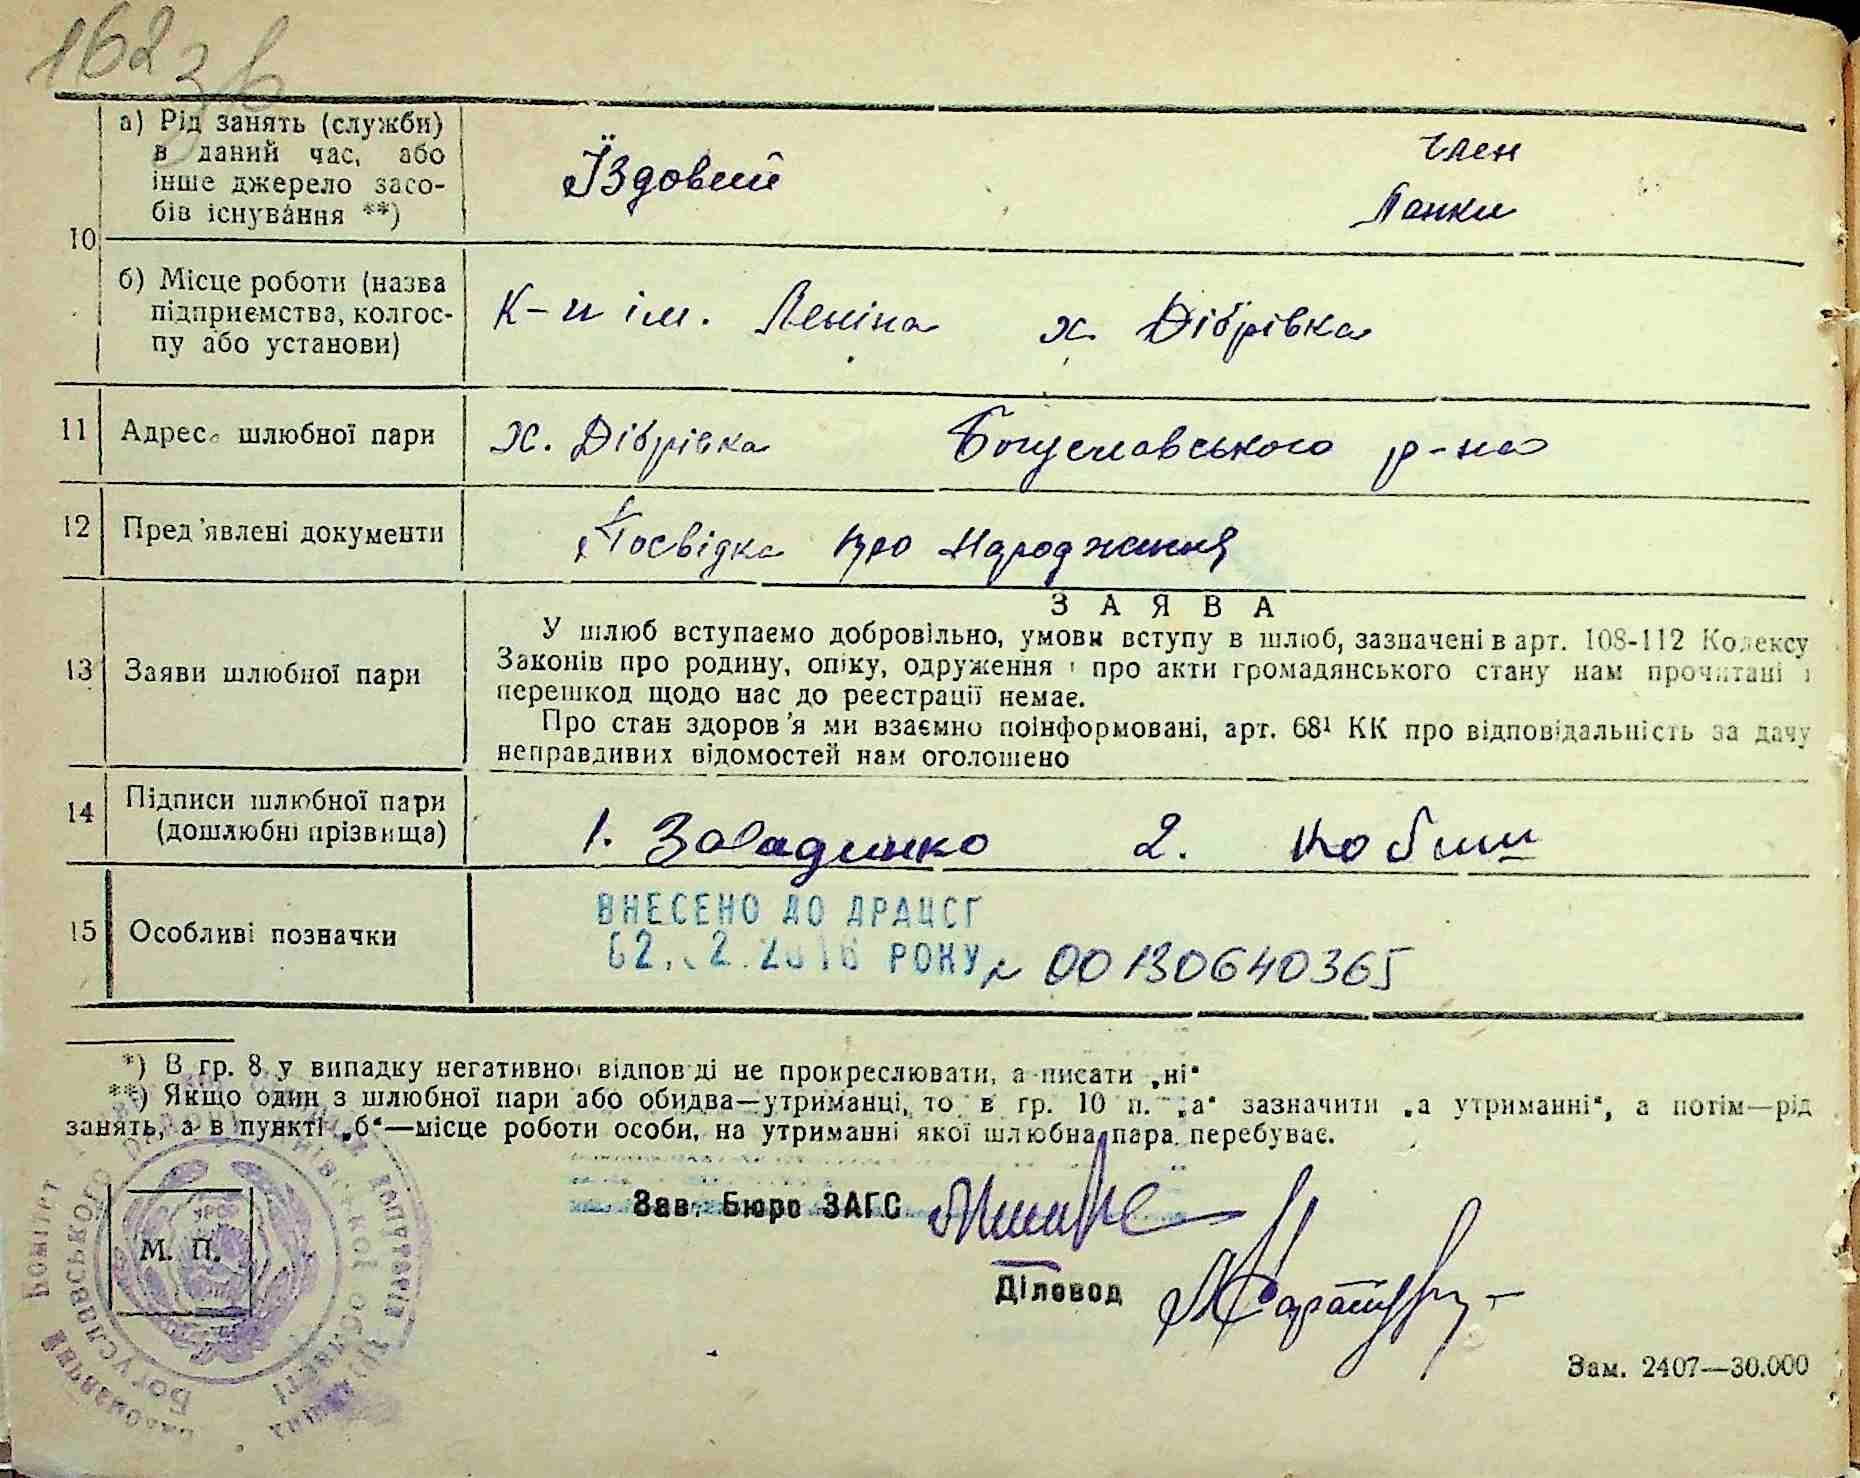 162 зв
10
а) Рід занять (служби)
в даний час, або
інше джерело засо-
бів існування **)
Їздовий
Член
Ланки
б) Місце роботи (назва
підприємства, колгос-
пу або установи)
К-п ім. Леніна х. Дібрівка
11 Адреса шлюбної пари
х. Дібрівка Богуславського р-на
12 Пред'явлені документи
Посвідка про Народження
13 Заяви шлюбної пари
ЗАЯВА
У шлюб вступаемо добровільно, умови вступу в шлюб, зазначені в арт. 108-112 Кодексу
Законів про родину, опіку, одруження і про акти громадянського стану нам прочитані і
перешкод щодо нас до реестрації немає.
Про стан здоров'я ми взаємно поінформовані, арт. 68¹ КК про відповідальність за дачу
неправдивих відомостей нам оголошено
14 Підписи шлюбної пари
(дошлюбні прізвища)
1. 2.
15 Особливі позначки
ВНЕСЕНО ДО ДРАЦСГ
РОКУ № 00130640365
*) В гр. 8 у випадку негативної відповіді не прокреслювати, а писати „ні“
**) Якщо один з шлюбної пари або обидва—утриманці, то в гр. 10 п. „а“ зазначити „а утриманні“, а потім—рід
занять, а в пункті „б“—місце роботи особи, на утриманні якої шлюбна пара перебуває.
Зав. Бюро ЗАГС
Діловод
М. П.
УРСР
Богуславського
області
Зам. 2407—30.000